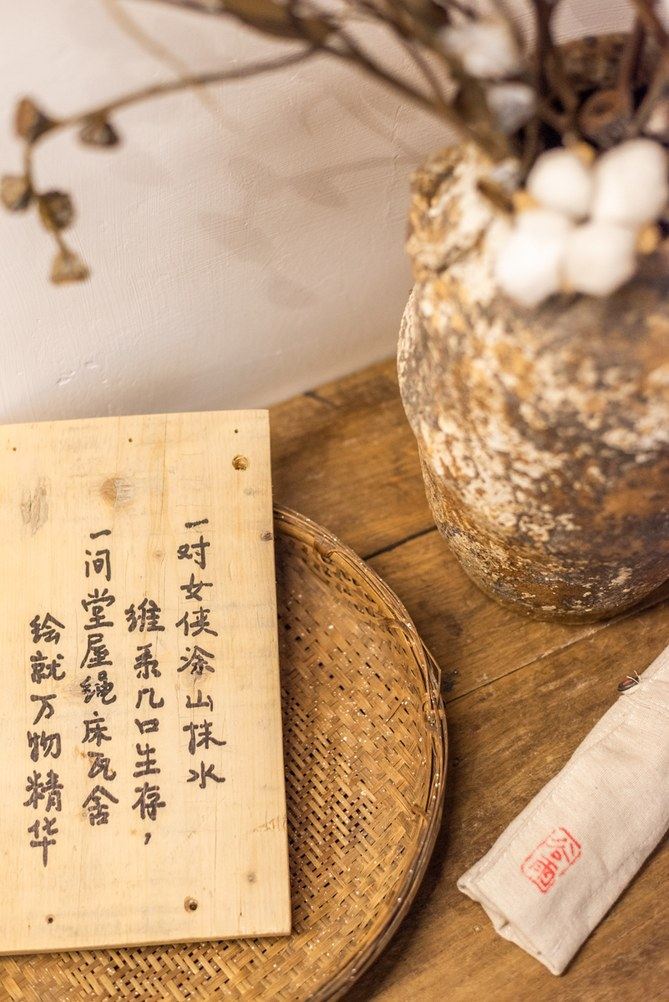 一对女侠涂山抹水
维系几口生存，
一间堂屋绳床瓦舍
绘就万物精华